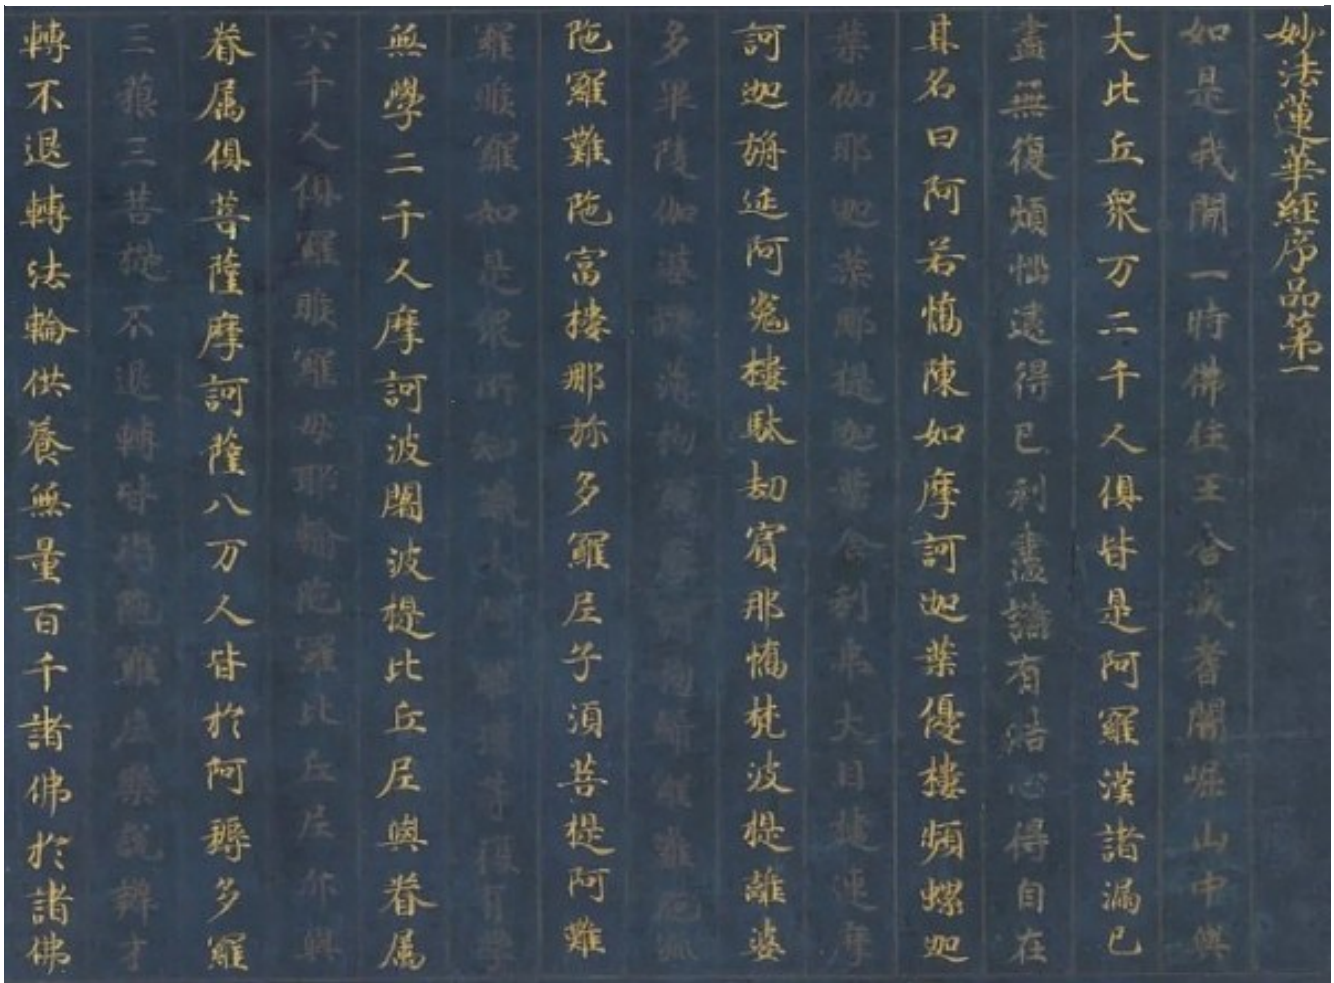 妙法蓮華經序品第一
如是我聞一時佛住王舍城耆闍崛山中與
大比丘衆万二千人俱皆是阿羅漢諸漏已
盡無復煩惱逮得己利盡諸有結心得自在
其名曰阿若憍陳如摩訶迦葉優樓頻螺迦
葉伽耶迦葉那提迦葉舍利弗大目揵連摩
訶迦旃延阿㝹樓馱劫賓那憍梵波提離婆
多畢陵伽婆蹉薄拘羅摩訶拘絺羅難陀孫
陀羅難陀富樓那弥多羅尼子須菩提阿難
羅睺羅如是衆所知識大阿羅漢等復有學
無學二千人摩訶波闍波提比丘尼與眷属
六千人俱羅睺羅母耶輸陀羅比丘尼亦與
眷属俱菩薩摩訶薩八万人皆於阿耨多羅
三藐三菩提不退轉皆得陀羅尼樂說辯才
轉不退轉法輪供養無量百千諸佛於諸佛